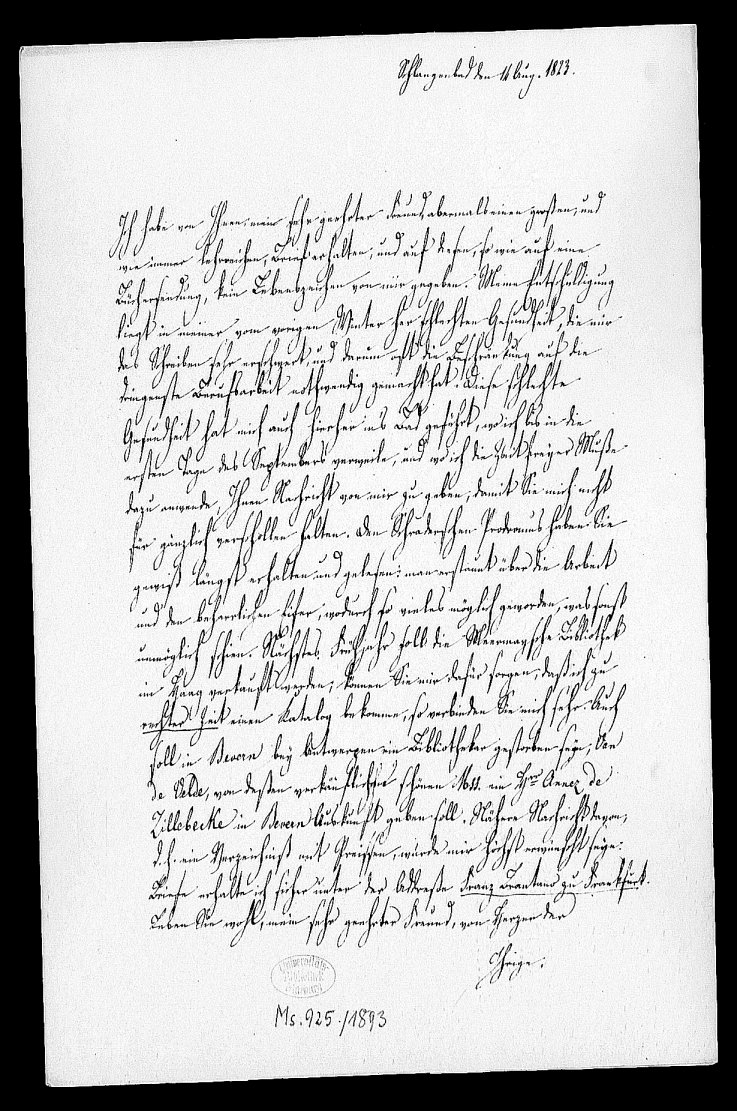 Schlangenbad den 14 Aug. 1823.
Ich habe von Ihnen, mein sehr geehrter Freund, abermals einen großen, und
wie immer lehrreichen, Brief erhalten, und auf diesen, so wie auf eine
Büchersendung, kein Lebenszeichen von mir gegeben. Meine Entschuldigung
liegt in meiner vom vorigen Winter her schlechten Gesundheit, die mir
das Schreiben sehr erschwert, und darum oft die Beschränkung auf die
dringenste Berufsarbeit nothwendig gemacht hat. Diese schlechte
Gesundheit hat mich auch hierher ins Bad geführt, wo ich bis in die
ersten Tage des Septembers verweile, und wo ich die Zeit freyer Muße
dazu anwende, Ihnen Nachricht von mir zu geben, damit Sie mich nicht
für gänzlich verschollen halten. Den Schraderschen Prodromus haben Sie
gewiß längst erhalten und gelesen: man erstaunt über die Arbeit
und den beharrlichen Eifer, wodurch so vieles möglich geworden, was sonst
unmöglich schien. Nächstes Frühjahr soll die Meermannsche Bibliothek
im Haag verkauft werden; können Sie mir dafür sorgen, daß ich zu
rechter Zeit einen Katalog bekomme, so verbinden Sie mich sehr. Auch
soll in Bevern bey Antwerpen ein Bibliothekar gestorben seyn, Van
de Velde, von deßen verkäuflichen schönen Mss. ein Hr Annez de
Zillebecke in Bevern Auskunft geben soll. Nähere Nachricht davon,
d.h. ein Verzeichniß mit Preißen, würde mir höchst erwünscht seyn.
Briefe erhalte ich sicher unter der Addreße Franz Brentano zu Frankfurt.
Leben Sie wohl, mein sehr geehrter Freund, von Herzen der
Ihrige.
Universitäts
Bibliothek
Ms. 925./1893